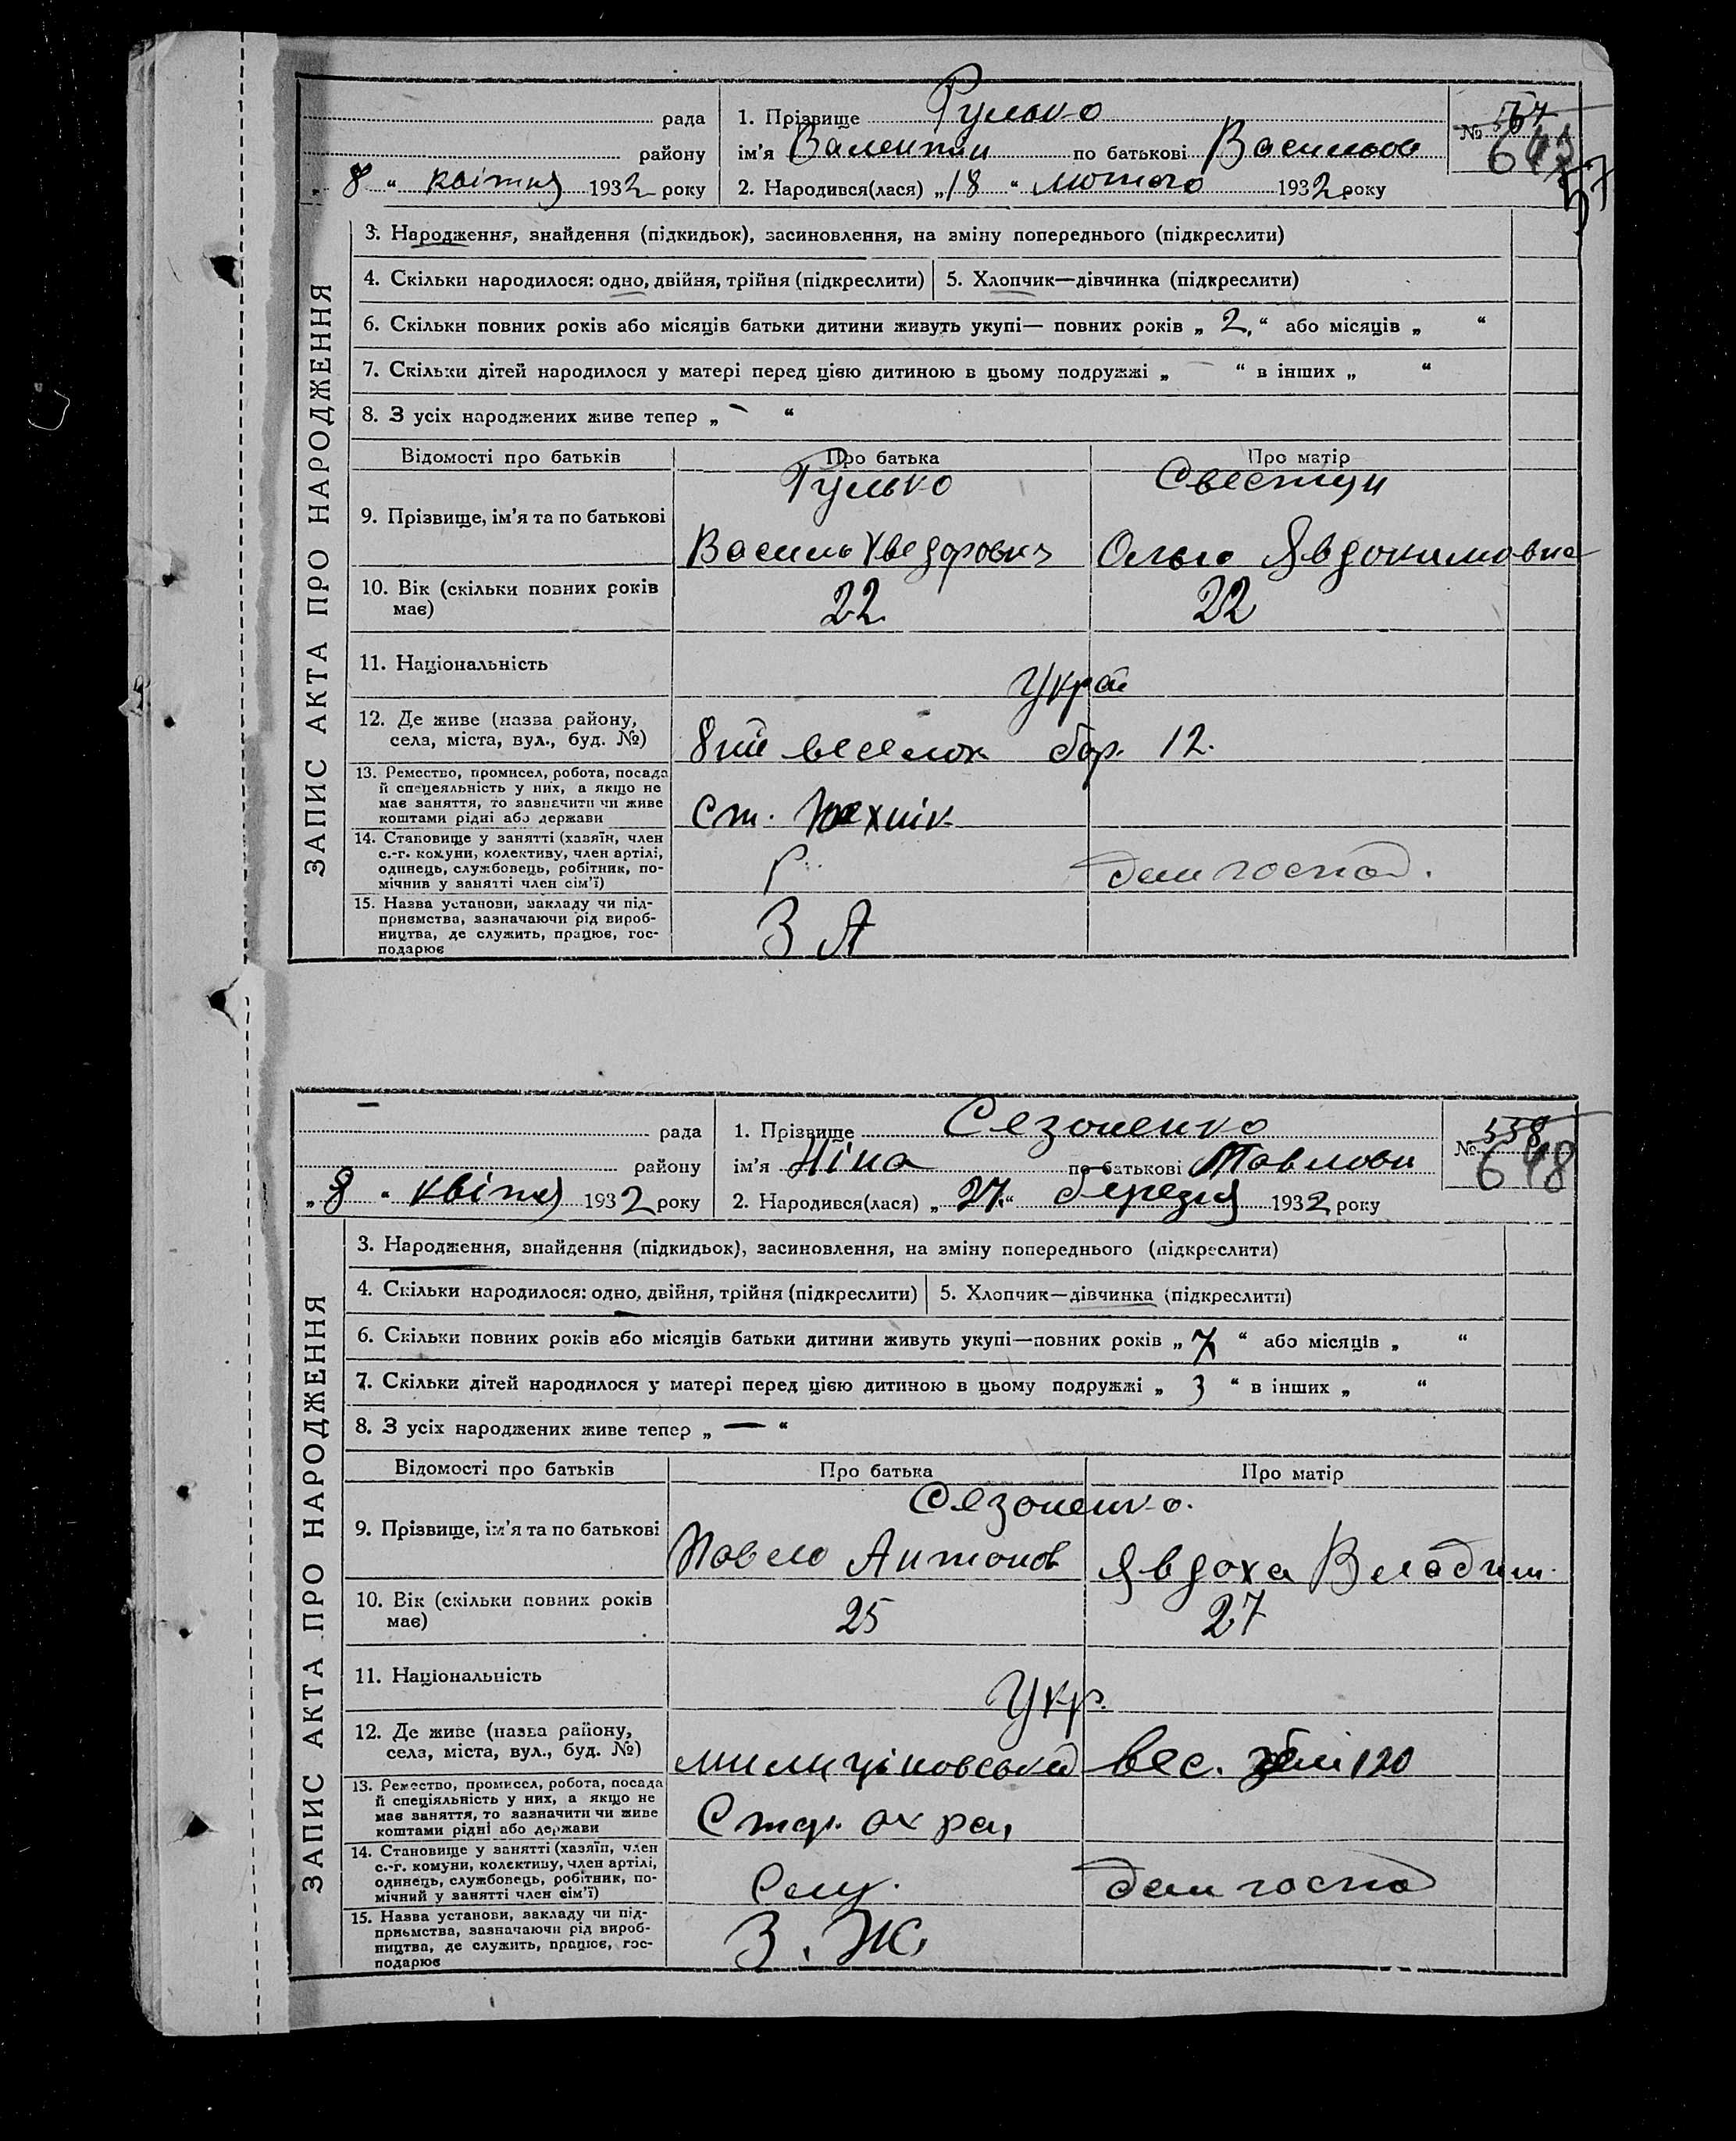 рада
району
„ 8 “ квітня 1932 року
1. Прізвище Гулько
ім’я Валентин по батькові Васильов
2. Народився(лася) „18 “ лютого 1932 року
№
ЗАПИС АКТА ПРО НАРОДЖЕННЯ
3. Народження, знайдення (підкидьок), засиновлення, на зміну попереднього (підкреслити)
4. Скільки народилося: одно, двійня, трійня (підкреслити)
5. Хлопчик—дівчинка (підкреслити)
6. Скільки повних років або місяців батьки дитини живуть укупі— повних років „ 2 “ або місяців „ “
7. Скільки дітей народилося у матері перед цією дитиною в цьому подружжі „ “ в інших „ “
8. З усіх народжених живе тепер „ – “
Відомості про батьків
Про батька
Про матір
9. Прізвище, ім’я та по батькові
Гулько
Василь Хведорович
Ольга Явдокимовна
10. Вік (скільки повних років
має)
22
22
11. Національність
Украї
12. Де живе (назва району,
села, міста, вул., буд. №)
бар. 12.
13. Ремество, промисел, робота, посада
й спецеяльність у них, а якщо не
має заняття, то зазначити чи живе
коштами рідні або держави
ст. технік
14. Становище у занятті (хазяїн, член
с.-г. комуни, колективу, член артілі,
одинець, службовець, робітник, по-
мічнив у занятті член сім’ї)
Р.
дом господ.
15. Назва установи, закладу чи під-
приємства, зазначаючи рід вироб-
ництва, де служить, працює, гос-
подарює
З А
рада
району
„ 8 “ квітня 1932 року
1. Прізвище Сезоненко
ім’я Ніна по батькові Павлови
2. Народився(лася) „ 27. “ березня 1932 року
№ 558
648
ЗАПИС АКТА ПРО НАРОДЖЕННЯ
3. Народження, знайдення (підкидьок), засиновлення, на зміну попереднього (підкреслити)
4. Скільки народилося: одно, двійня, трійня (підкреслити)
5. Хлопчик—дівчинка (підкреслити)
6. Скільки повних років або місяців батьки дитини живуть укупі—повних років „ 7 “ або місяців „ “
7. Скільки дітей народилося у матері перед цією дитиною в цьому подружжі „ 3 “ в інших „ “
8. З усіх народжених живе тепер „ — “
Відомості про батьків
Про батька
Про матір
Сезоненко.
9. Прізвище, ім’я та по батькові
Павло Антонов
Явдоха Владим.
10. Вік (скільки повних років
має)
25
27
11. Національність
Укр.
12. Де живе (назва району,
села, міста, вул., буд. №)
вес. 120
13. Ремество, промисел, робота, посада
й спеціяльність у них, а якщо не
має заняття, то зазначити чи живе
коштами рідні або держави
охран
14. Становище у занятті (хазяїн, член
с.-г. комуни, колективу, член артілі,
одинець, службовець, робітник, по-
мічний у занятті член сім’ї)
Служ.
дом господ
15. Назва установи, закладу чи під-
приємства, зазначаючи рід вироб-
ництва, де служить, працює, гос-
подарює
З. Ж.